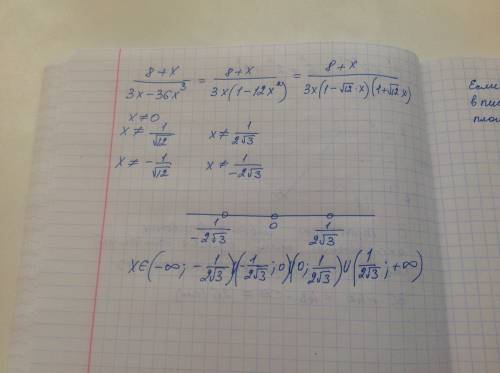 \frac{8+x}{3x-36x^3} = \frac{8+x}{3x(1-12x^2)} = \frac{8+x}{3x(1-\sqrt{12}\cdot x)(1+\sqrt{12}x)}
x≠0
x≠\frac{1}{\sqrt{12}} x≠\frac{1}{2\sqrt{3}}
x≠-\frac{1}{\sqrt{12}} x≠\frac{1}{-2\sqrt{3}}
\frac{1}{-2\sqrt{3}} 0 \frac{1}{2\sqrt{3}}
x∈(-∞; -\frac{1}{2\sqrt{3}})(-\frac{1}{2\sqrt{3}}; 0)(0; \frac{1}{2\sqrt{3}})∪(\frac{1}{2\sqrt{3}}; +∞)
Если
в пис
площ